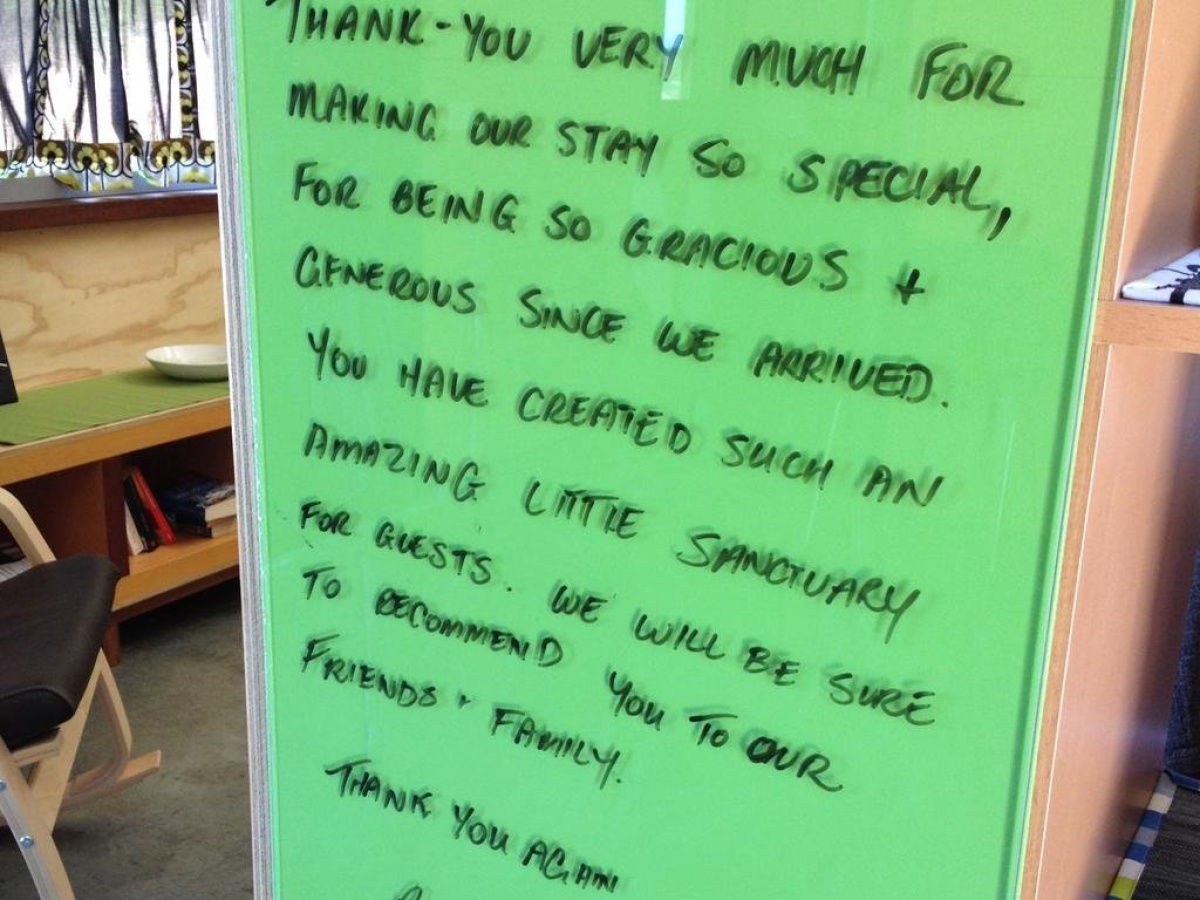 THANK-YOU VERY MUCH FOR
MAKING OUR STAY SO SPECIAL,
FOR BEING SO GRACIOUS +
GENEROUS SINCE WE ARRIVED.
YOU HAVE CREATED SUCH AN
AMAZING LITTLE SANCTUARY
FOR GUESTS. WE WILL BE SURE
TO RECOMMEND YOU TO OUR
FRIENDS + FAMILY.
THANK YOU AGAIN